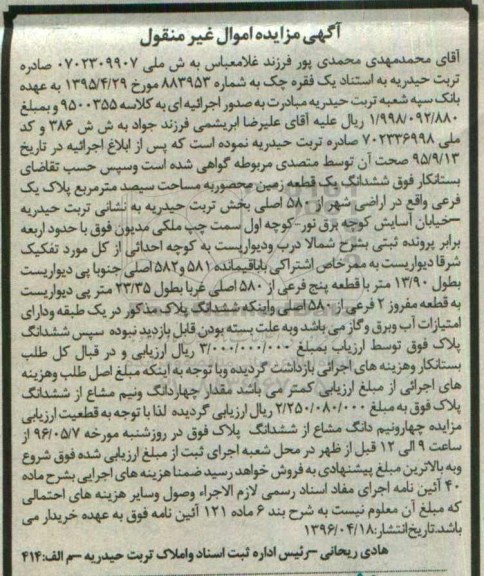 آگهی مزایده اموال غیر منقول
آقای محمدمهدی محمدی پور فرزند غلامعباس به ش ملی ۰۷۰۲۳۰۹۹۰۷ صادره
تربت حیدریه به استناد یک فقره چک به شماره ۸۸۳۹۵۳ مورخ ۱۳۹۵/۴/۲۹ به عهده
بانک سپه شعبه تربت حیدریه مبادرت به صدور اجرائیه ای به کلاسه ۹۵۰۰۳۵۵ و بمبلغ
۱/۹۹۸/۰۹۲/۸۸۰ ریال علیه آقای علیرضا ابریشمی فرزند جواد به ش ش ۳۸۶ و کد
ملی ۷۰۲۳۳۶۹۹۸ صادره تربت حیدریه نموده است که پس از ابلاغ اجرائیه در تاریخ
۹۵/۹/۱۳ صحت آن توسط متصدی مربوطه گواهی شده است وسپس حسب تقاضای
بستانکار فوق ششدانگ یک قطعه زمین محصوربه مساحت سیصد مترمربع پلاک یک
فرعی واقع در اراضی شهر از ۵۸۰ اصلی بخش تربت حیدریه به نشانی تربت حیدریه
–خیابان آسایش کوچه برق نور-کوچه اول سمت چپ ملکی مدیون فوق با حدود اربعه
برابر پرونده ثبتی بشرح شمالا درب ودیواریست به کوچه احداثی از کل مورد تفکیک
شرقا دیواریست به ممرخاص اشتراکی باباقیمانده ۵۸۱ و۵۸۲ اصلی جنوبا پی دیواریست
بطول ۱۳/۹۰ متر با قطعه پنج فرعی از ۵۸۰ اصلی غربا بطول ۲۲/۳۵ متر پی دیواریست
به قطعه مفروز ۲ فرعی از ۵۸۰ اصلی واینکه ششدانگ پلاک مذکور در یک طبقه ودارای
امتیازات آب وبرق و گاز می باشد وبه علت بسته بودن قابل بازدید نبوده سپس ششدانگ
پلاک فوق توسط ارزیاب بمبلغ ۳/۰۰۰/۰۰۰/۰۰۰ ریال ارزیابی و در قبال کل طلب
بستانکار وهزینه های اجرائی بازداشت گردیده وبا توجه به اینکه مبلغ اصل طلب وهزینه
های اجرائی از مبلغ ارزیابی کمتر می باشد مقدار چهاردانگ ونیم مشاع از ششدانگ
پلاک فوق به مبلغ ۲/۲۵۰/۰۸۰/۰۰۰ ریال ارزیابی گردیده لذا با توجه به قطعیت ارزیابی
مزایده چهارونیم دانگ مشاع از ششدانگ پلاک فوق در روزشنبه مورخه ۹۶/۰۵/۷ از
ساعت ۹ الی ۱۲ قبل از ظهر در محل شعبه اجرای ثبت از مبلغ ارزیابی شده فوق شروع
وبه بالاترین مبلغ پیشنهادی به فروش خواهد رسید ضمنا هزینه های اجرایی بشرح ماده
۴۰ آئین نامه اجرای مفاد اسناد رسمی لازم الاجراء وصول وسایر هزینه های احتمالی
که مبلغ آن معلوم نیست به شرح بند ۶ ماده ۱۲۱ آئین نامه فوق به عهده خریدار می
باشد.تاریخ انتشار: ۱۳۹۶/۰۴/۱۸
هادی ریحانی –رئیس اداره ثبت اسناد واملاک تربت حیدریه –م الف:۴۱۴